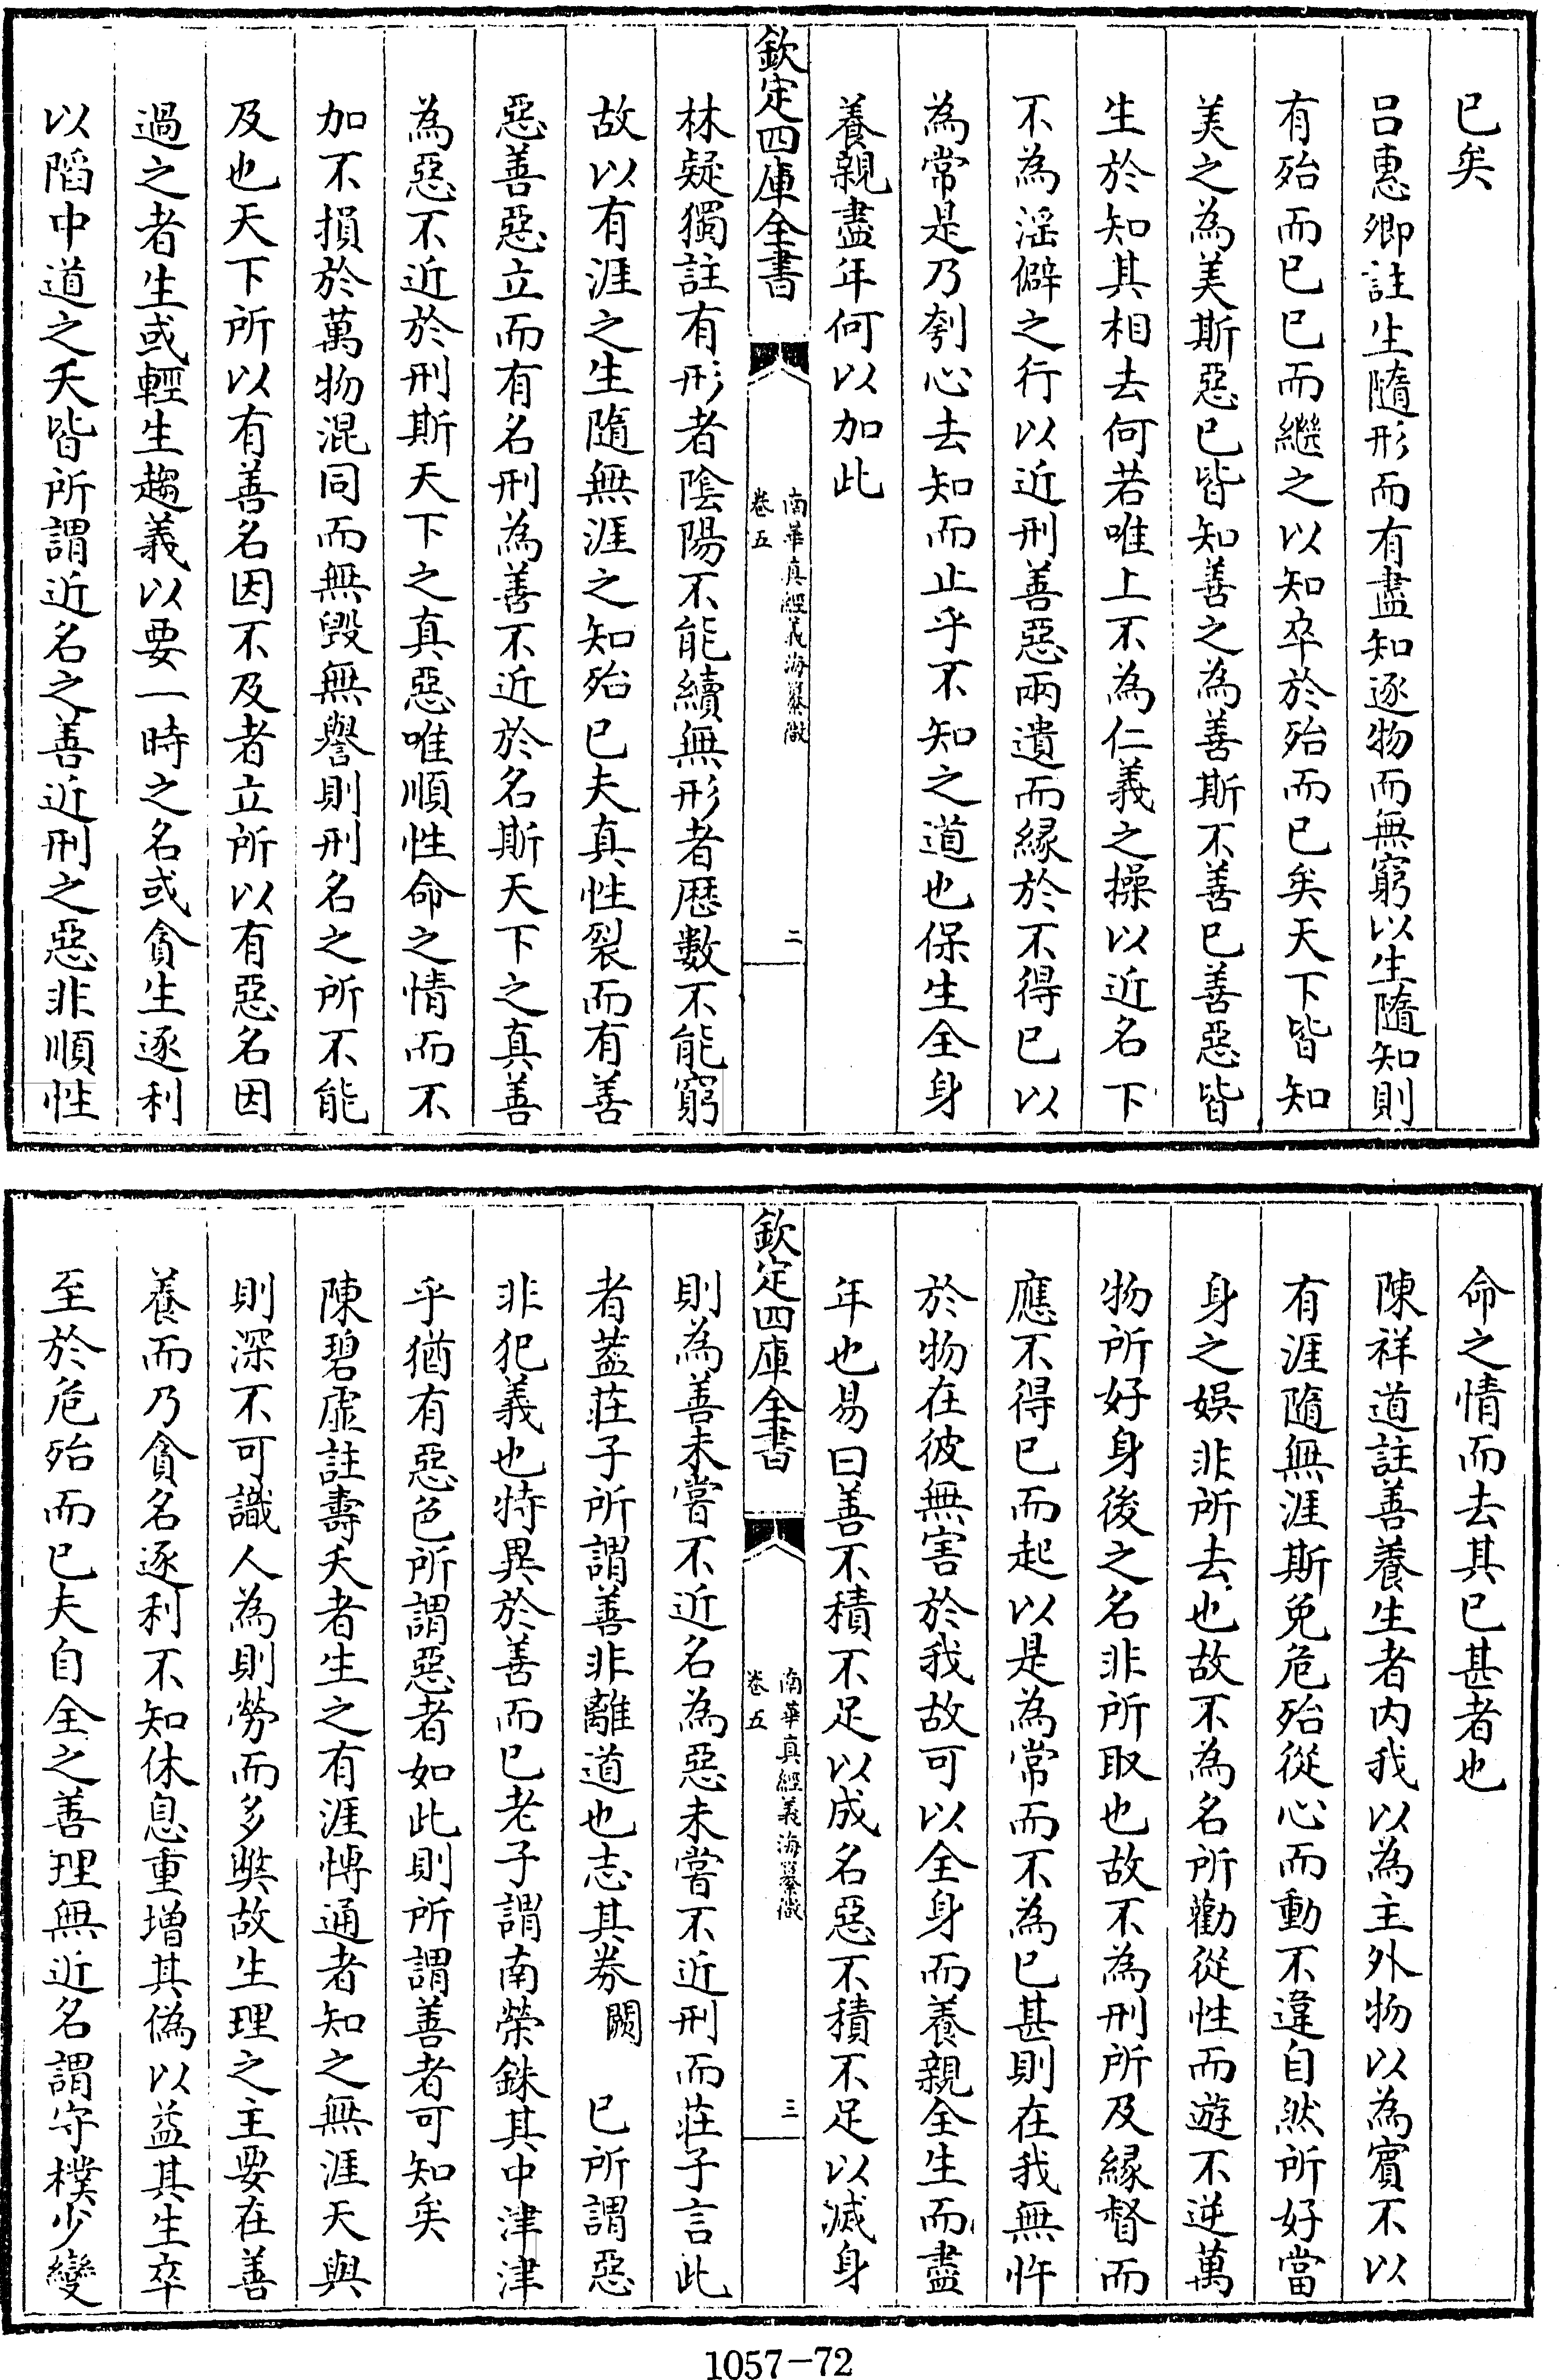 已矣
吕惠卿註生隨形而有盡知逐物而無窮以生隨知則
有殆而已已而繼之以知卒於殆而已矣天下皆知
美之為美斯惡已皆知善之為善斯不善已善惡皆
生於知其相去何若唯上不為仁義之操以近名下
不為滛僻之行以近刑善惡兩遺而縁於不得已以
為常是乃刳心去知而止乎不知之道也保生全身
養親盡年何以加此
欽定四庫全書
南華真經義海纂微
卷五
二
林疑獨註有形者陰陽不能續無形者歴數不能窮
故以有涯之生隨無涯之知殆已夫真性裂而有善
惡善惡立而有名刑為善不近於名斯天下之真善
為惡不近於刑斯天下之真惡唯順性命之情而不
加不損於萬物混同而無毁無譽則刑名之所不能
及也天下所以有善名因不及者立所以有惡名因
過之者生或輕生趨義以要一時之名或貪生逐利
以䧟中道之夭皆所謂近名之善近刑之惡非順性
命之情而去其已甚者也
陳祥道註善養生者内我以為主外物以為賓不以
有涯隨無涯斯免危殆從心而動不違自然所好當
身之娯非所去也故不為名所勸從性而遊不逆萬
物所好身後之名非所取也故不為刑所及縁督而
應不得已而起以是為常而不為已甚則在我無忤
於物在彼無害於我故可以全身而養親全生而盡
年也易曰善不積不足以成名惡不積不足以滅身
欽定四庫全書
南華真經義海纂微
卷五
三
則為善未嘗不近名為惡未嘗不近刑而莊子言此
者葢莊子所謂善非離道也志其劵 闕 已所謂惡
非犯義也特異於善而已老子謂南榮銖其中津津
乎猶有惡色所謂惡者如此則所謂善者可知矣
陳碧虚註壽夭者生之有涯愽通者知之無涯天與
則深不可識人為則勞而多獘故生理之主要在善
養而乃貪名逐利不知休息重増其偽以益其生卒
至於危殆而已夫自全之善理無近名謂守樸少變
1057-72